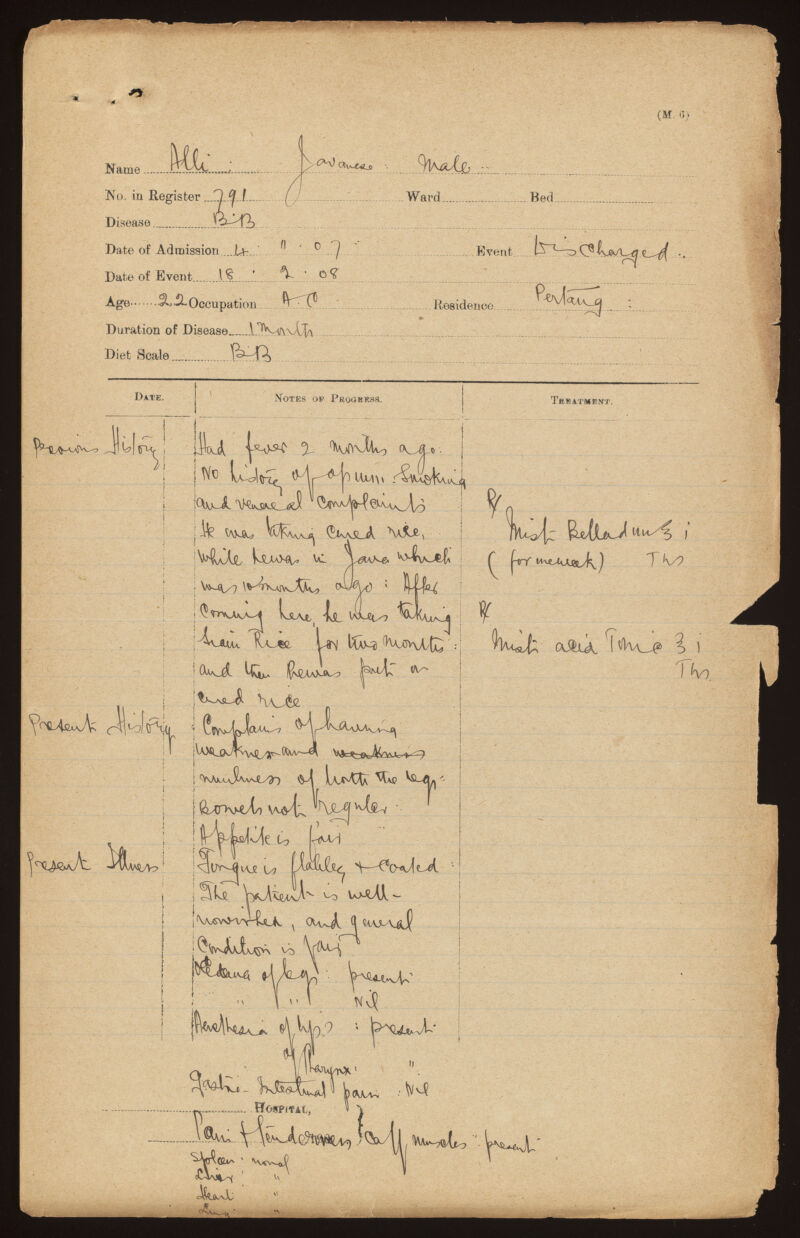 (M. 6)
Name Alli : Javanese. Male.
No. in Register 791 Ward Bed
Disease B.B
Date of Admission 4 . 11 . 07 Event Discharged.
Date of Event 18 . 2 . 08
Age 22 Occupation A.C Residence Pertang :
Duration of Disease 1 Month
Diet Scale B.B
DATE. NOTES OF PROGRESS. TREATMENT.
Previous History Had fever 2 months ago.
No history of opium Smoking
and veneral complaints
He was taking cured rice,
while he was in Java which
was months ago : After
coming here, he was taking
Siam Rice for two months :
and then he was put on
cured rice
℞
Mist Belladun ʒ i
( for ) Tds
℞
Mist acid Tonic ʒ i
Tds
Present History Complains of having
weakness and weakness
numbness of both the legs.
Bowels not regular.
Appetite is fair
Present Illness Tongue is flabby + coated :
The patient is well-
nourished, and general
condition is fair
Oedema of legs : present
" " Nil
of lips : present
of Pharynx. "
Gastro-Intestinal pain : Nil
HOSPITAL,
Pain & Tenderness calf muscles present
Spleen : normal
Liver "
Heart "
Lung "